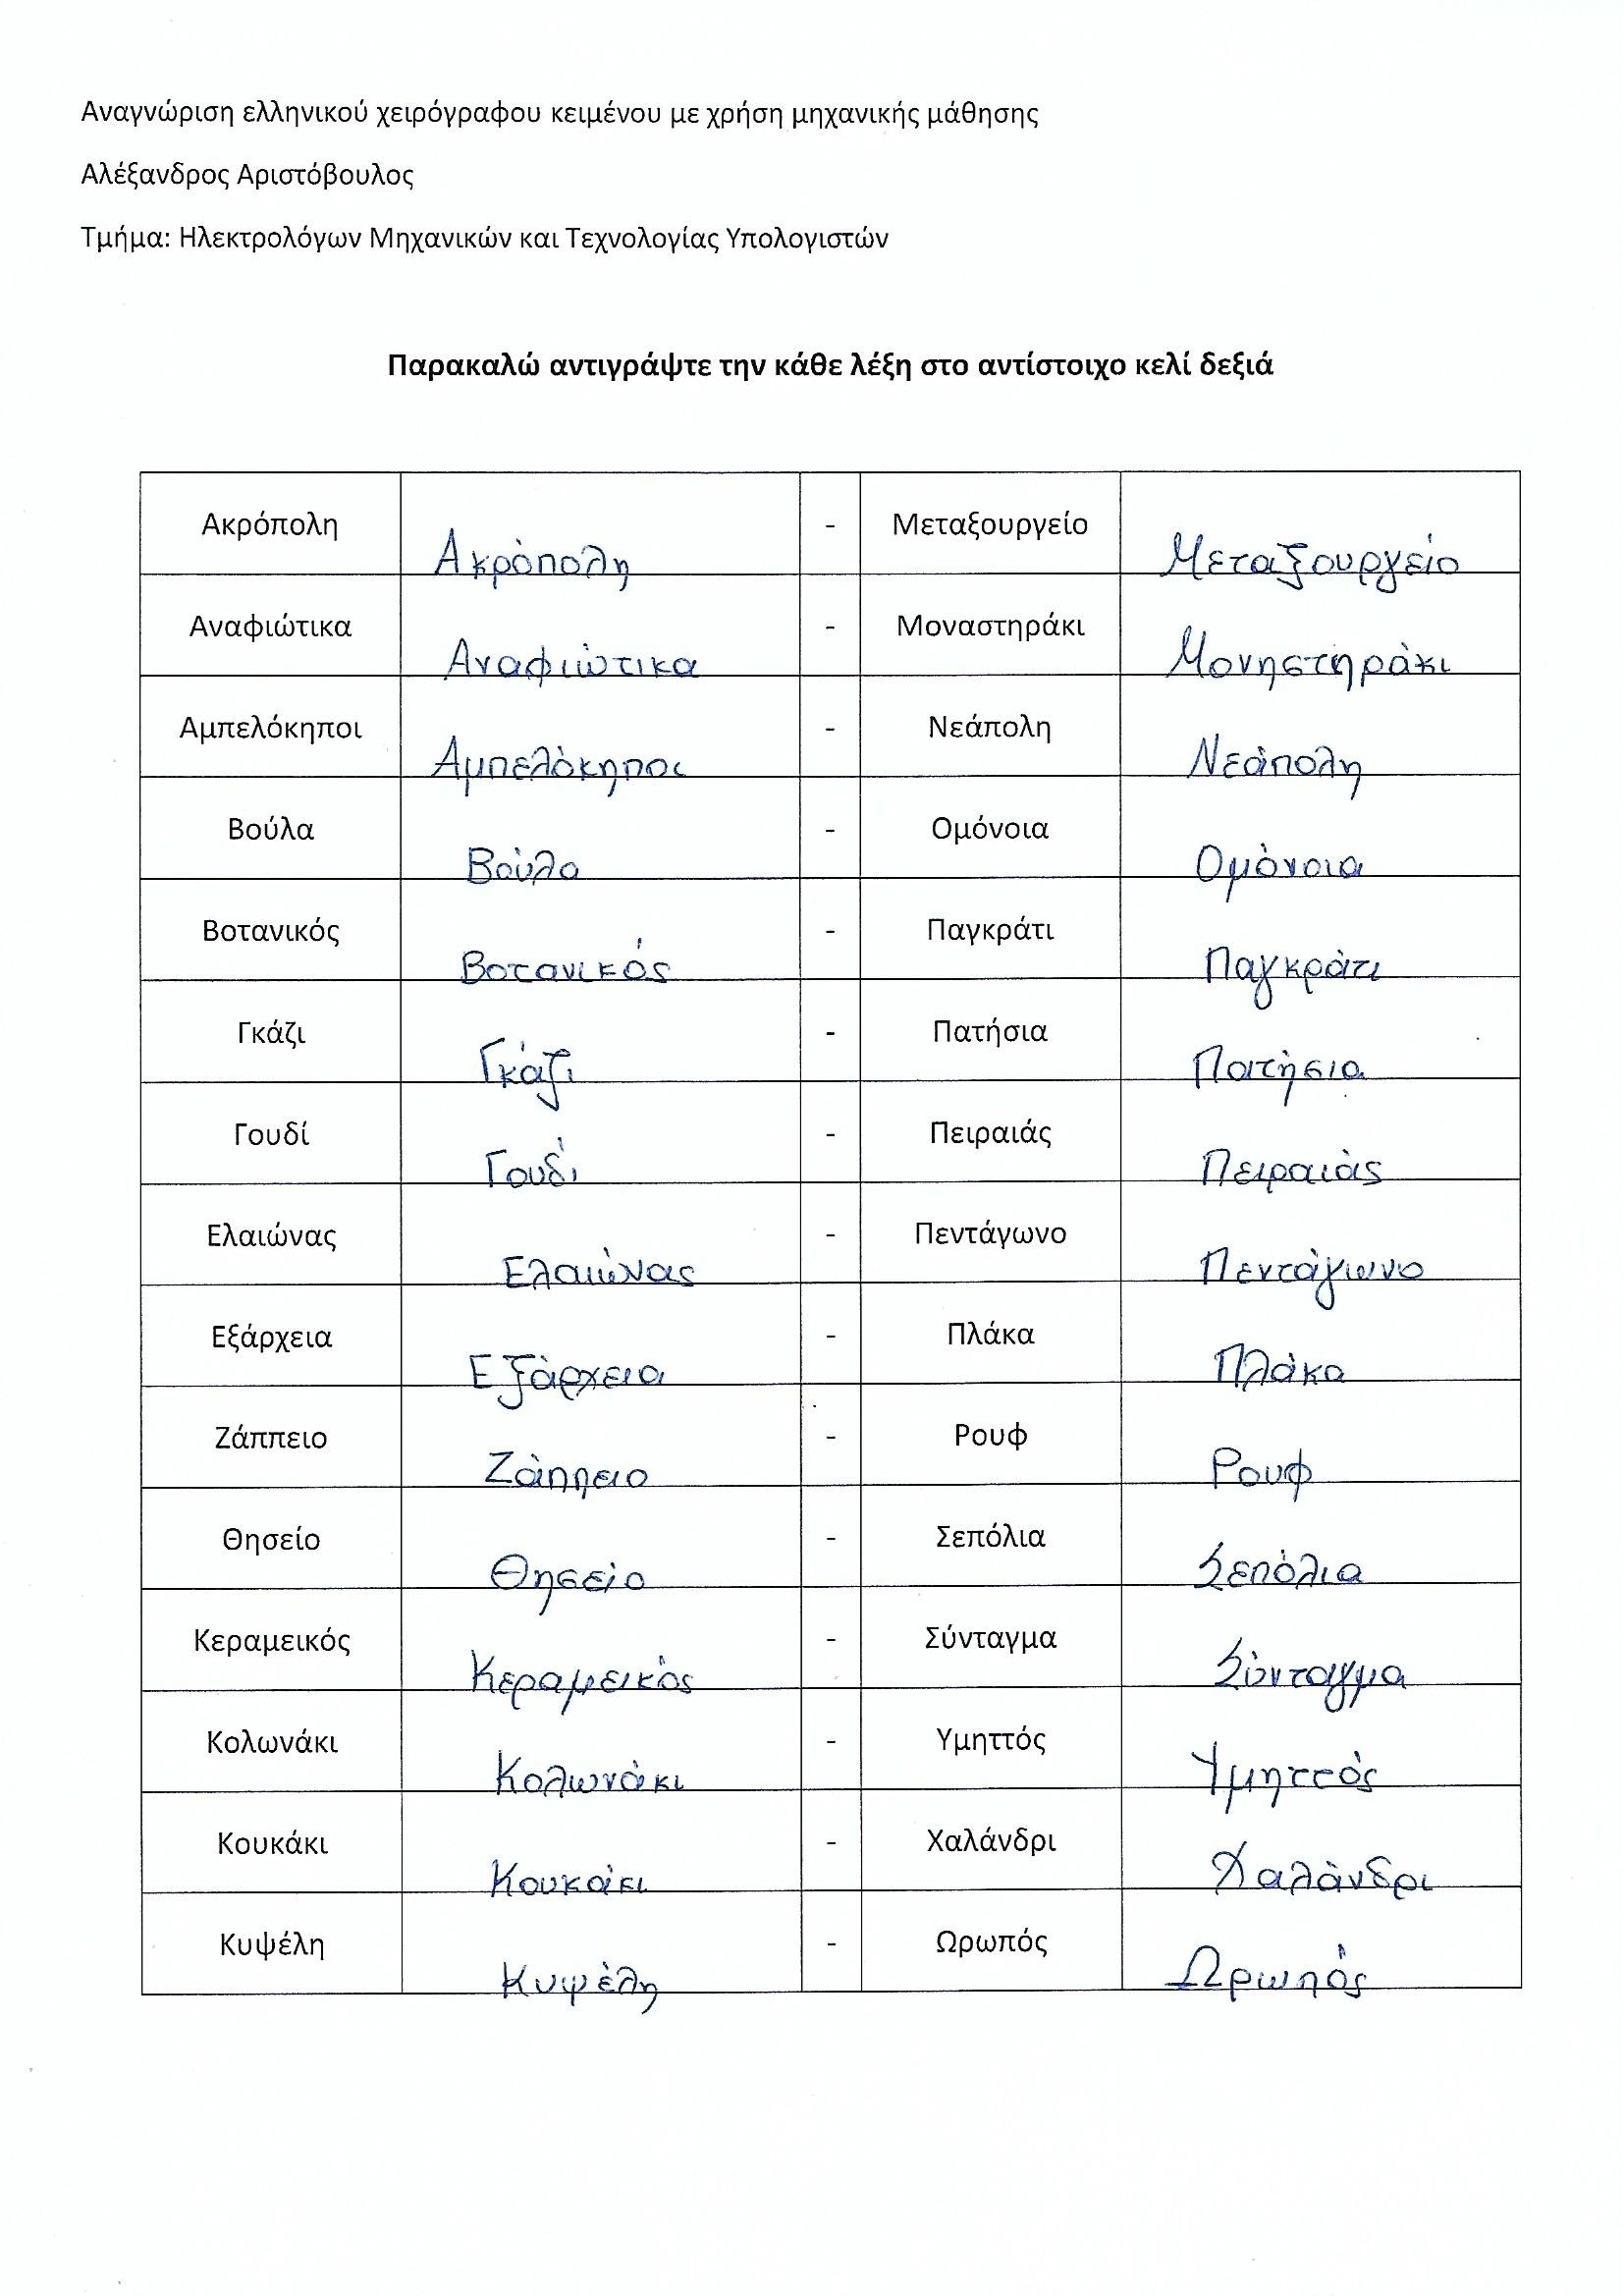 Αναγνώριση ελληνικού χειρόγραφου κειμένου με χρήση μηχανικής μάθησης
Αλέξανδρος Αριστόβουλος
Τμήμα: Ηλεκτρολόγων Μηχανικών και Τεχνολογίας Υπολογιστών
Παρακαλώ αντιγράψτε την κάθε λέξη στο αντίστοιχο κελί δεξιά
Ακρόπολη Ακρόπολη - Μεταξουργείο Μεταξουργείο
Αναφιώτικα Αναφιώτικα - Μοναστηράκι Μονηστηράκι
Αμπελόκηποι Αμπελόκηποι - Νεάπολη Νεάπολη
Βούλα Βούλα - Ομόνοια Ομόνοια
Βοτανικός Βοτανικός - Παγκράτι Παγκράτι
Γκάζι Γκάζι - Πατήσια Πατήσια
Γουδί Γουδί - Πειραιάς Πειραιάς
Ελαιώνας Ελαιώνας - Πεντάγωνο Πεντάγωνο
Εξάρχεια Εξάρχεια - Πλάκα Πλάκα
Ζάππειο Ζάππειο - Ρουφ Ρουφ
Θησείο Θησείο - Σεπόλια Σεπόλια
Κεραμεικός Κεραμεικός - Σύνταγμα Σύνταγμα
Κολωνάκι Κολωνάκι - Υμηττός Υμηττός
Κουκάκι Κουκάκι - Χαλάνδρι Χαλάνδρι
Κυψέλη Κυψέλη - Ωρωπός Ωρωπός